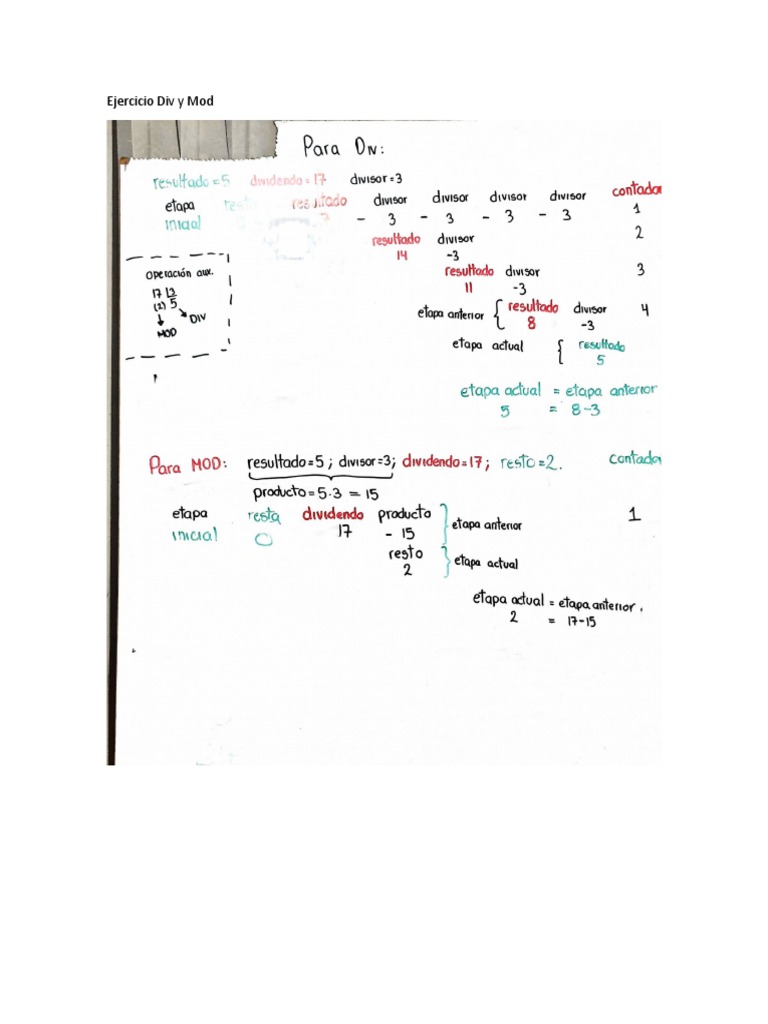 Ejercicio Div y Mod
Para Div:
resultado=5 dividendo=17 divisor=3
etapa resta resultado divisor divisor divisor divisor contador
inicial - 3 - 3 - 3 - 3 1
resultado divisor 2
14 -3
resultado divisor 3
11 -3
etapa anterior { resultado divisor 4
8 -3
etapa actual { resultado
5
Operación aux.
17 |3
(2) 5
DIV
MOD
etapa actual = etapa anterior
5 = 8-3
Para MOD: resultado=5; divisor=3; dividendo=17; resto=2. contador
producto=5·3 = 15
etapa resta dividendo producto } etapa anterior 1
inicial 0 17 - 15
resto } etapa actual
2
etapa actual = etapa anterior.
2 = 17-15